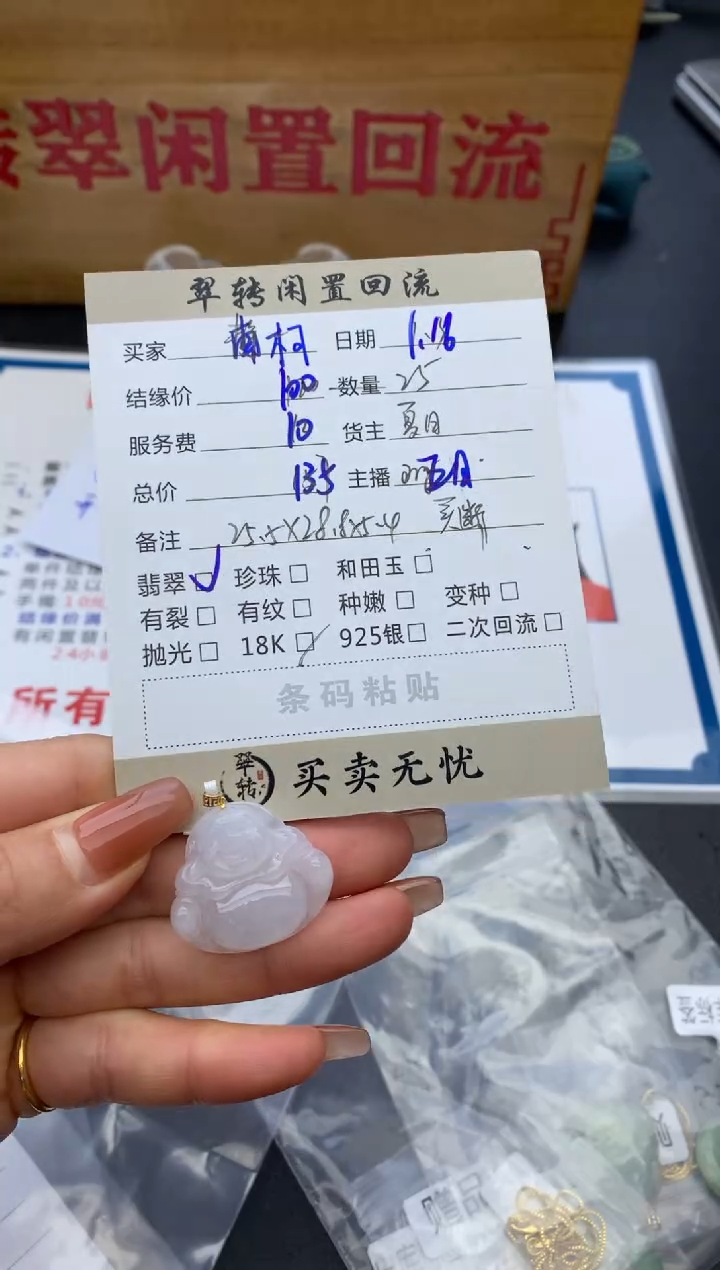 翠闲置回流
翠转闲置回流
买家 南柯 日期 1.16
结缘价 100 数量 25
服务费 10 货主 夏日
总价 135 主播 五月
备注 25.5X28.8X5.4 买断
翡翠 珍珠 和田玉
有裂 有纹 种嫩 变种
抛光 18K 925银 二次回流
条码粘贴
翠转 买卖无忧
所有
赠品